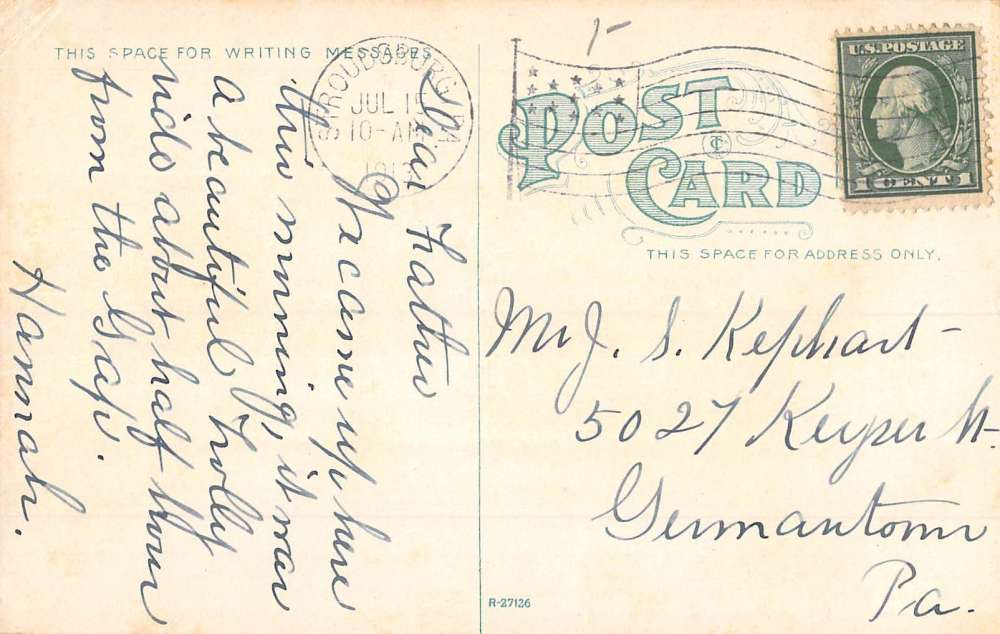 THIS SPACE FOR WRITING MESSAGES
STROUDSBURG, PA
JUL 15
10-AM
Dear Father
We came up here
this morning, it was
a beautiful trolly
ride about half hour
from the Gap.
Hannah.
POST CARD
U.S. POSTAGE
1 CENT 1
THIS SPACE FOR ADDRESS ONLY.
Mr J. S. Kephart
5027 Keyser St
Germantown
Pa.
R-27126